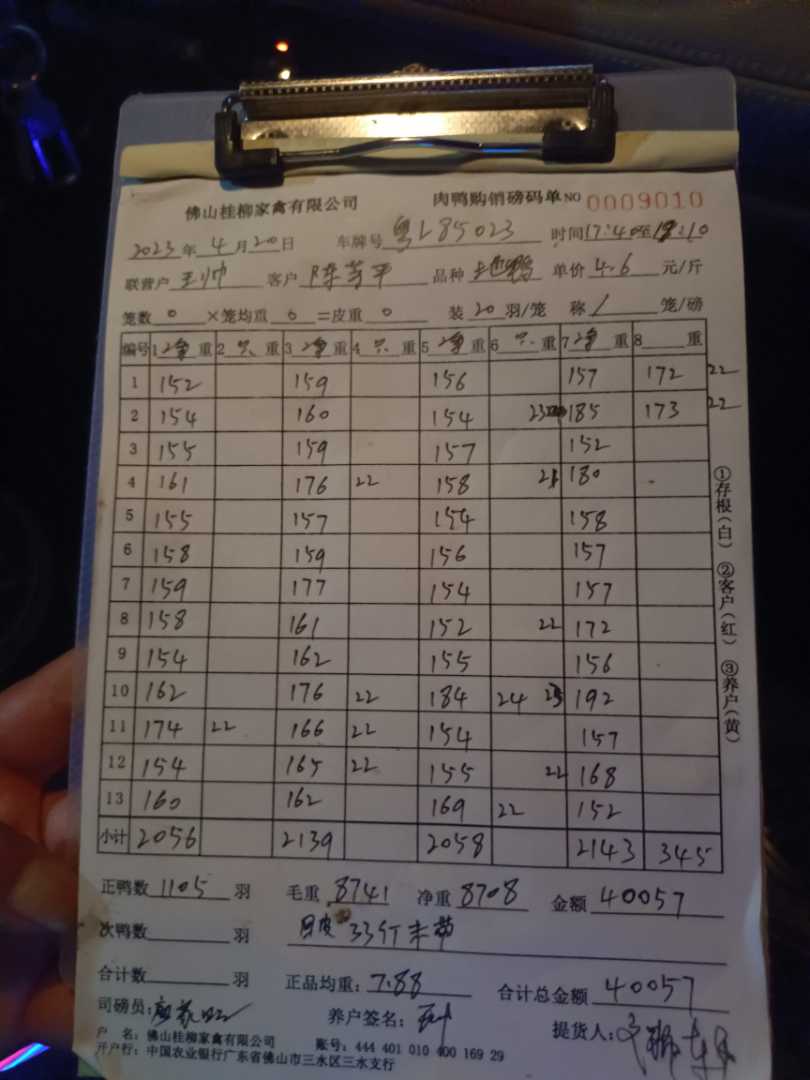 佛山桂柳家禽有限公司 肉鸭购销磅码单 NO 0009010
2023年4月20日 车牌号 粤L85023 时间17:40至18:10
联营户 王帅 客户 陈 平 品种 单价 4.6 元/斤
笼数 0 ×笼均重 0 =皮重 0 装 20 羽/笼 称 1 笼/磅
编号 1 净 重 2 只 重 3 净 重 4 只 重 5 净 重 6 只 重 7 净 重 8 重
1 152 159 156 157 172 22
2 154 160 154 23 185 173 22
3 155 159 157 152
4 161 176 22 158 180
5 155 157 154 158
6 158 159 156 157
7 159 177 154 157
8 158 161 152 22 172
9 154 162 155 156
10 162 176 22 184 24 192
11 174 22 166 22 154 157
12 154 165 22 155 22 168
13 160 162 169 22 152
小计 2056 2139 2058 2143 345
正鸭数 1105 羽 毛重 8741 净重 8708 金额 40057
次鸭数 羽 33斤
合计数 羽 正品均重: 7.88 合计总金额 40057
司磅员: 养户签名: 提货人:
户 名: 佛山桂柳家禽有限公司 账号: 444 401 010 400 169 29
开户行: 中国农业银行广东省佛山市三水区三水支行
①存根(白) ②客户(红) ③养户(黄)